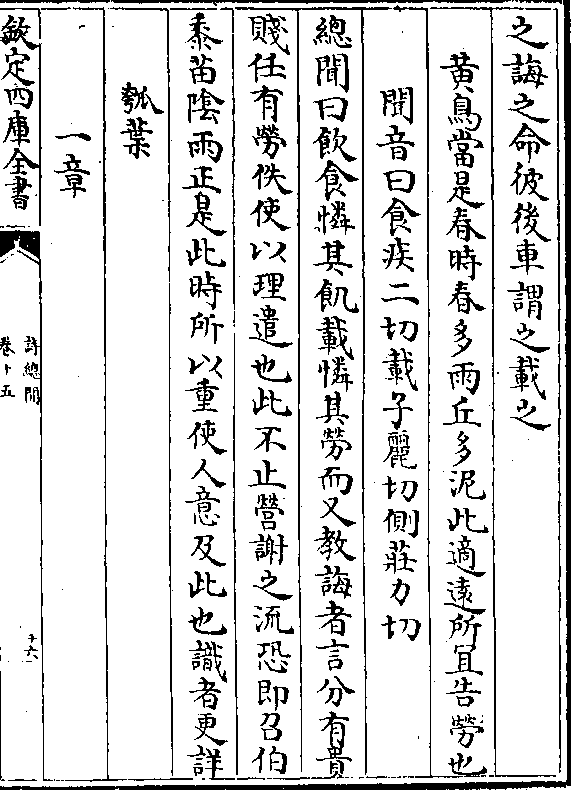 之誨之命彼後車謂之載之
黄鳥當是春時春多雨丘多泥此適逺所冝告勞也
聞音曰食疾二切載子麗切側莊力切
總聞曰飲食憐其飢載憐其勞而又教誨者言分有貴
賤任有勞佚使以理遣也此不止營謝之流恐即召伯
黍苗陰雨正是此時所以重使人意及此也識者更詳
瓠葉
一章
欽定四庫全書
詩總聞
卷十五
十六